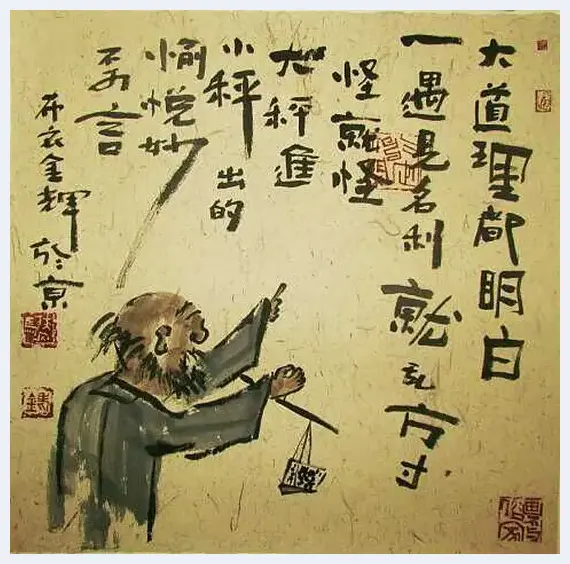 大道理都明白
一遇見名利就乱方寸
怪就怪
大秤進
小秤出的
愉悦妙
不可言
布衣金輝於京